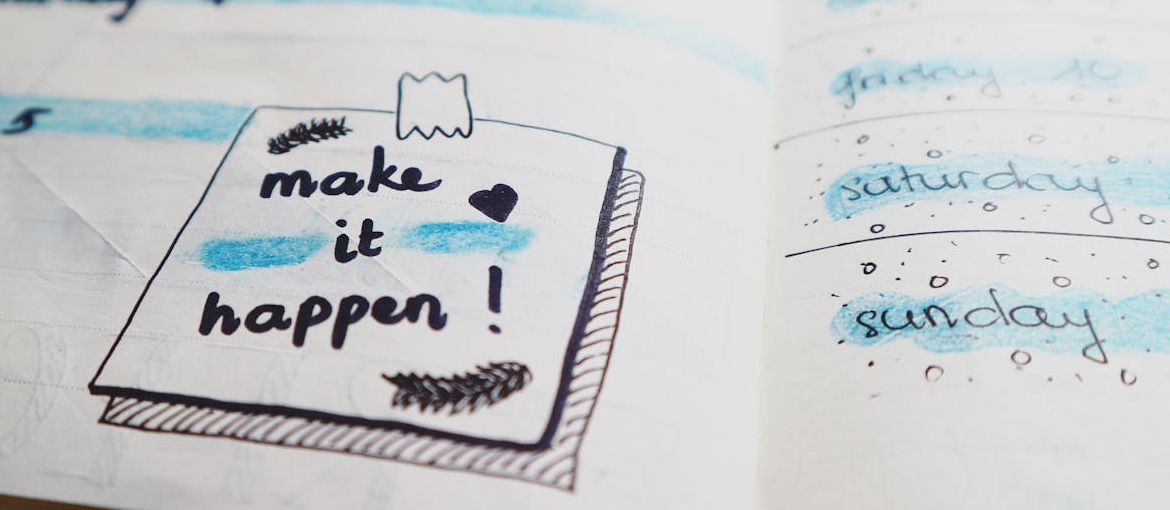 5
make
it
happen!
friday 10
saturday
sunday